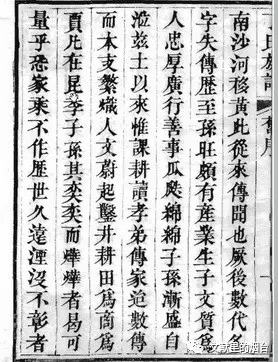 氏族譜
南沙河移黃此從來傳聞也厥後數代名
字失傳歷至孫旺頗有產業生子文質為
人忠厚廣行善事瓜瓞綿綿子孫漸盛自
涖茲土以來惟課耕讀孝弟傳家迨數傳
而本支繁熾人文蔚起鑿井耕田為商為
賈凡在昆季子孫其奕奕而燁燁者曷可
量乎恐家乘不作歷世久遠湮沒不彰者
文献里的烟台